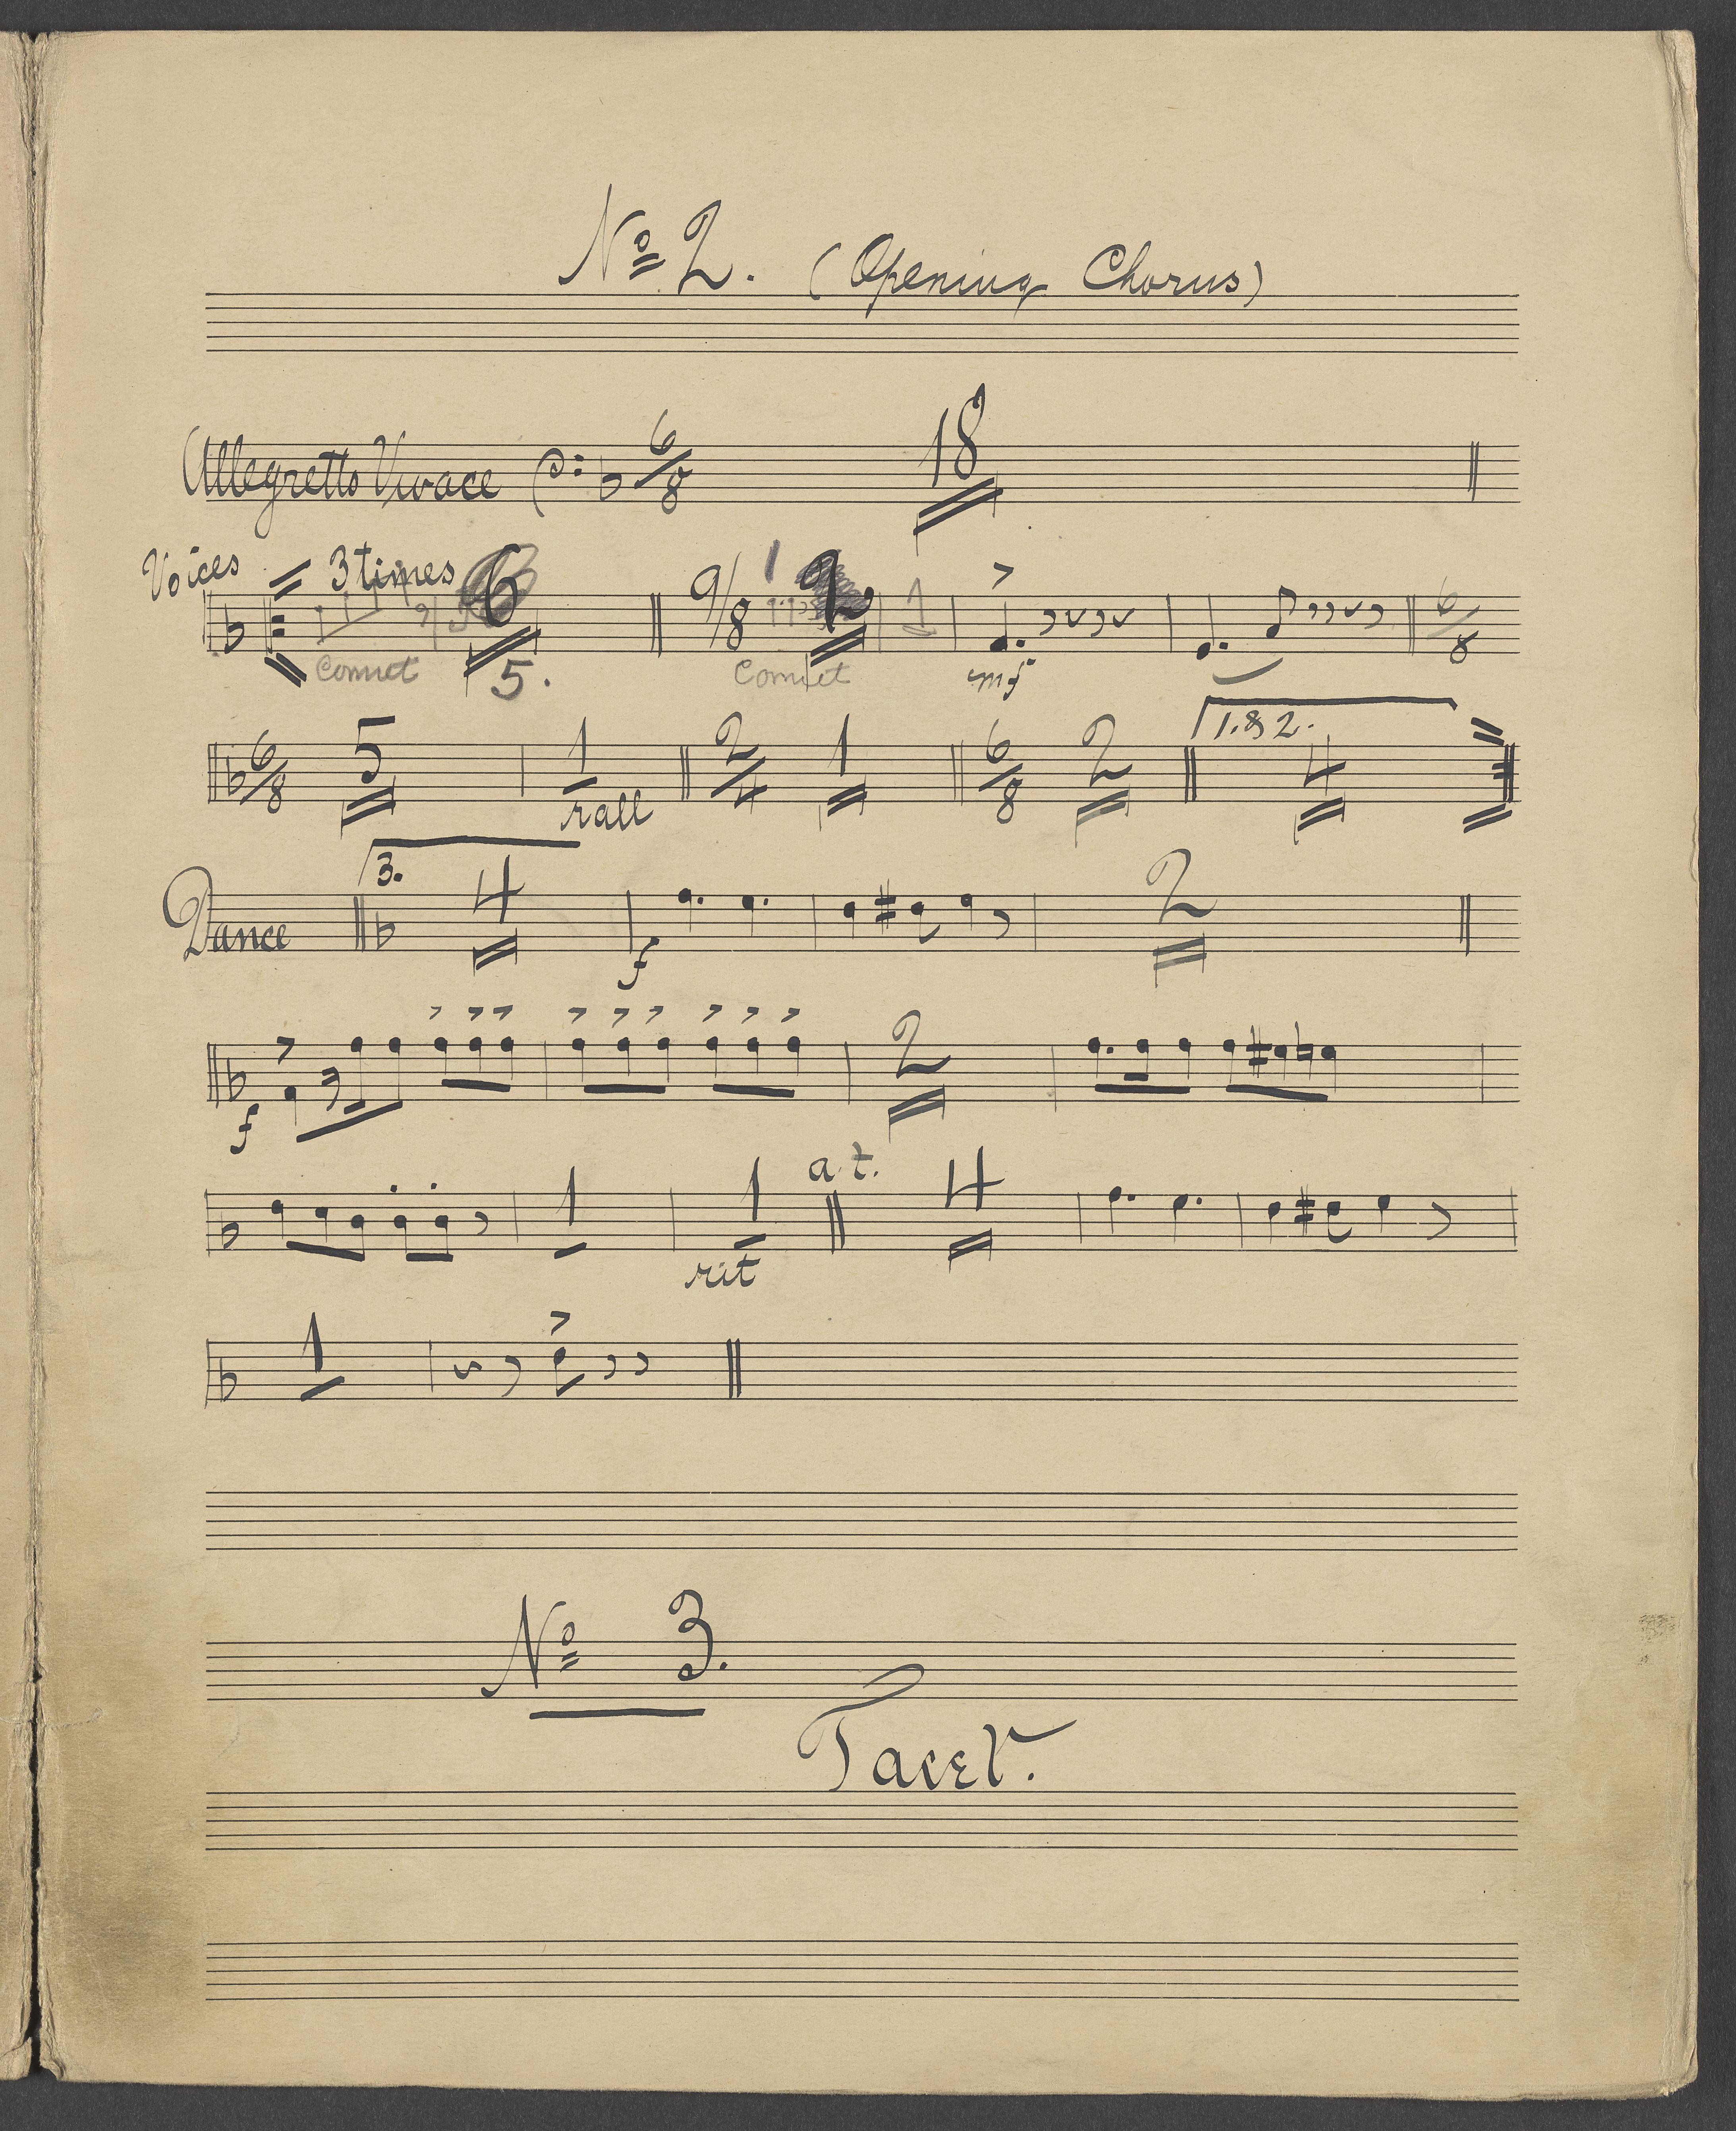 Nº 2. (Opening Chorus)
Allegretto Vivace 6/8 18
Voices 3 times 6 9/8 1 2 1 6/8
Cornet 5. Cornet mf
6/8 5 1 2/4 1 6/8 2 1. & 2. 4
rall
Dance 3. 4 2
f
2
f
a t.
1 1 4
rit
1
Nº 3.
Tacet.